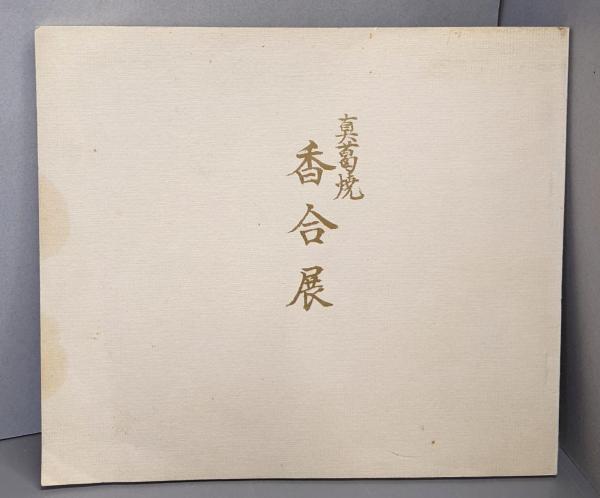 真葛焼
香合展